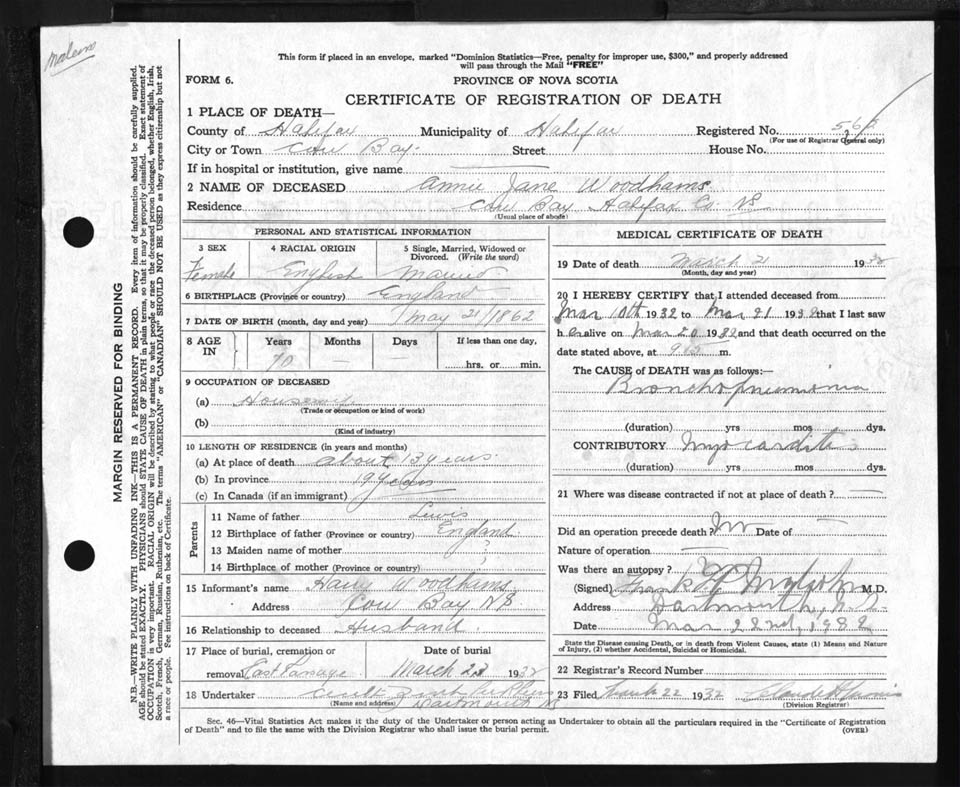 This form if placed in an envelope, marked "Dominion Statistics—Free, penalty for improper use, $300," and properly addressed
will pass through the Mail "FREE"
FORM 6.
PROVINCE OF NOVA SCOTIA
CERTIFICATE OF REGISTRATION OF DEATH
MARGIN RESERVED FOR BINDING
N.B.—WRITE PLAINLY WITH UNFADING INK—THIS IS A PERMANENT RECORD. Every item of information should be carefully supplied.
AGE should be stated EXACTLY. PHYSICIANS should STATE CAUSE OF DEATH in plain terms, so that it may be properly classified. Exact statement of
OCCUPATION is very important. RACIAL ORIGIN will be described by stating to what people or race the deceased person belonged, whether English, Irish,
Scotch, French, German, Russian, Ruthenian, etc. The terms "AMERICAN" or "CANADIAN" SHOULD NOT BE USED as they express citizenship but not
a race or people. See instructions on back of Certificate.
1 PLACE OF DEATH—
County of Halifax Municipality of Halifax Registered No.
(For use of Registrar General only)
City or Town Cow Bay Street House No.
If in hospital or institution, give name —
2 NAME OF DECEASED Annie Jane Woodhams
Residence Cow Bay Halifax Co. NS
(Usual place of abode)
PERSONAL AND STATISTICAL INFORMATION
3 SEX Female
4 RACIAL ORIGIN English
5 Single, Married, Widowed or Divorced. (Write the word) Married
6 BIRTHPLACE (Province or country) England
7 DATE OF BIRTH (month, day and year) May 21/1862
8 AGE IN Years 70 Months — Days — If less than one day, hrs. or min.
9 OCCUPATION OF DECEASED
(a) Housewife
(Trade or occupation or kind of work)
(b)
(Kind of industry)
10 LENGTH OF RESIDENCE (in years and months)
(a) At place of death about 13 years
(b) In province 19 years
(c) In Canada (if an immigrant)
Parents
11 Name of father Lewis
12 Birthplace of father (Province or country) England
13 Maiden name of mother ?
14 Birthplace of mother (Province or country) ?
15 Informant's name Harry Woodhams
Address Cow Bay NS
16 Relationship to deceased Husband
17 Place of burial, cremation or removal East Passage
Date of burial March 23 1932
18 Undertaker
(Name and address) Dartmouth NS
MEDICAL CERTIFICATE OF DEATH
19 Date of death March 21 1932
(Month, day and year)
20 I HEREBY CERTIFY that I attended deceased from
Mar 10th 1932 to Mar 21 1932 that I last saw
her alive on Mar 20 1932 and that death occurred on the
date stated above, at 915 m.
The CAUSE of DEATH was as follows:—
Bronchopneumonia
(duration) yrs mos dys.
CONTRIBUTORY Myocarditis
(duration) yrs mos dys.
21 Where was disease contracted if not at place of death? —
Did an operation precede death? No Date of —
Nature of operation —
Was there an autopsy?
(Signed) Frank M.D.
Address Dartmouth, N.S.
Date Mar 22nd, 1932
State the Disease causing Death, or in death from Violent Causes, state (1) Means and Nature of Injury, (2) whether Accidental, Suicidal or Homicidal.
22 Registrar's Record Number
23 Filed March 22 1932 Claude
(Division Registrar)
Sec. 46—Vital Statistics Act makes it the duty of the Undertaker or person acting as Undertaker to obtain all the particulars required in the "Certificate of Registration
of Death" and to file the same with the Division Registrar who shall issue the burial permit.
(OVER)